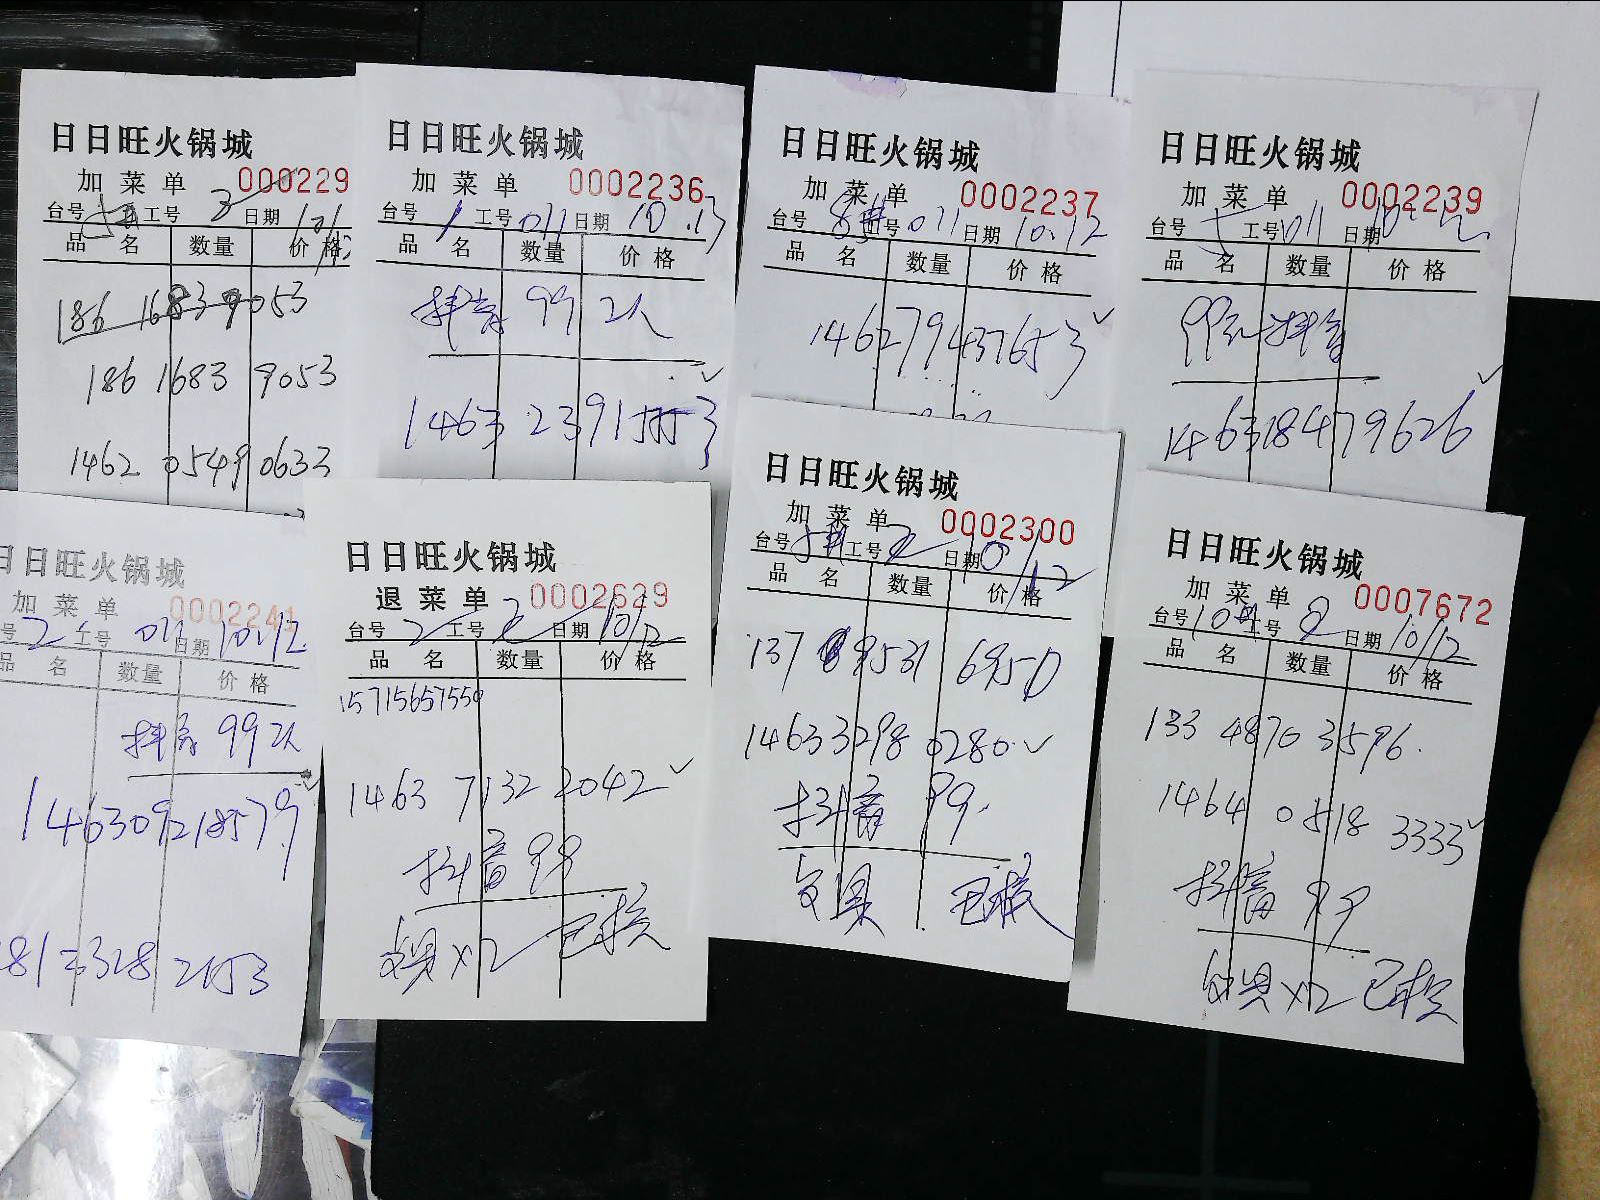 日日旺火锅城
加菜单 000229
台号 工号 3 日期 10/12
品名 数量 价格
186 1683 9053
186 1683 9053
1462 0549 0633
日日旺火锅城
加菜单 0002236
台号 1 工号 011 日期 10.13
品名 数量 价格
抖音 99 2人
1463 2391
日日旺火锅城
加菜单 0002237
台号 工号 011 日期 10.12
品名 数量 价格
146279437653
日日旺火锅城
加菜单 0002239
台号 工号 011 日期 10.12
品名 数量 价格
99元抖音
146318479626
日日旺火锅城
加菜单 0002241
号 2 工号 011 日期 10.12
品名 数量 价格
抖音 99 2人
146309218579
813328 2153
日日旺火锅城
退菜单 0002629
台号 2 工号 2 日期 10/12
品名 数量 价格
15715657550
1463 7132 2042
抖音 99
餐具 x2 已核
日日旺火锅城
加菜单 0002300
台号 工号 2 日期 10/12
品名 数量 价格
137 9531 6950
14633298 0280
抖音 99
餐具 已核
日日旺火锅城
加菜单 0007672
台号 10 工号 2 日期 10/12
品名 数量 价格
133 4870 3596
1464 0518 3333
抖音 99
餐具 x2 已核